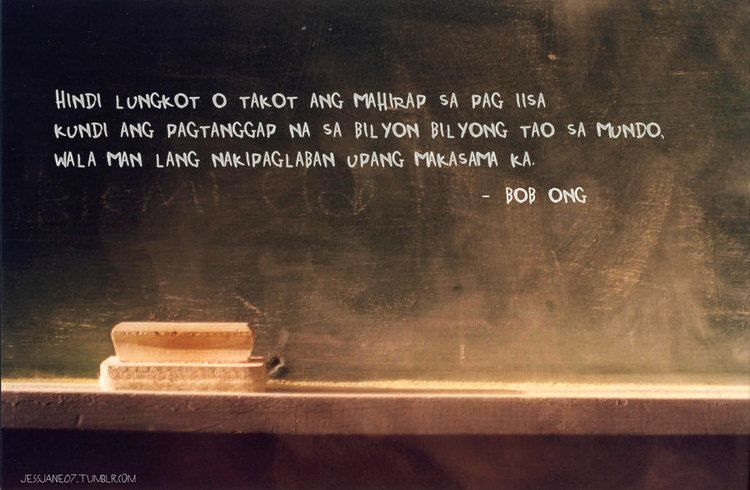 HINDI LUNGKOT O TAKOT ANG MAHIRAP SA PAG IISA
KUNDI ANG PAGTANGGAP NA SA BILYON BILYONG TAO SA MUNDO,
WALA MAN LANG NAKIPAGLABAN UPANG MAKASAMA KA.
- BOB ONG
JESSJANE07.TUMBLR.COM